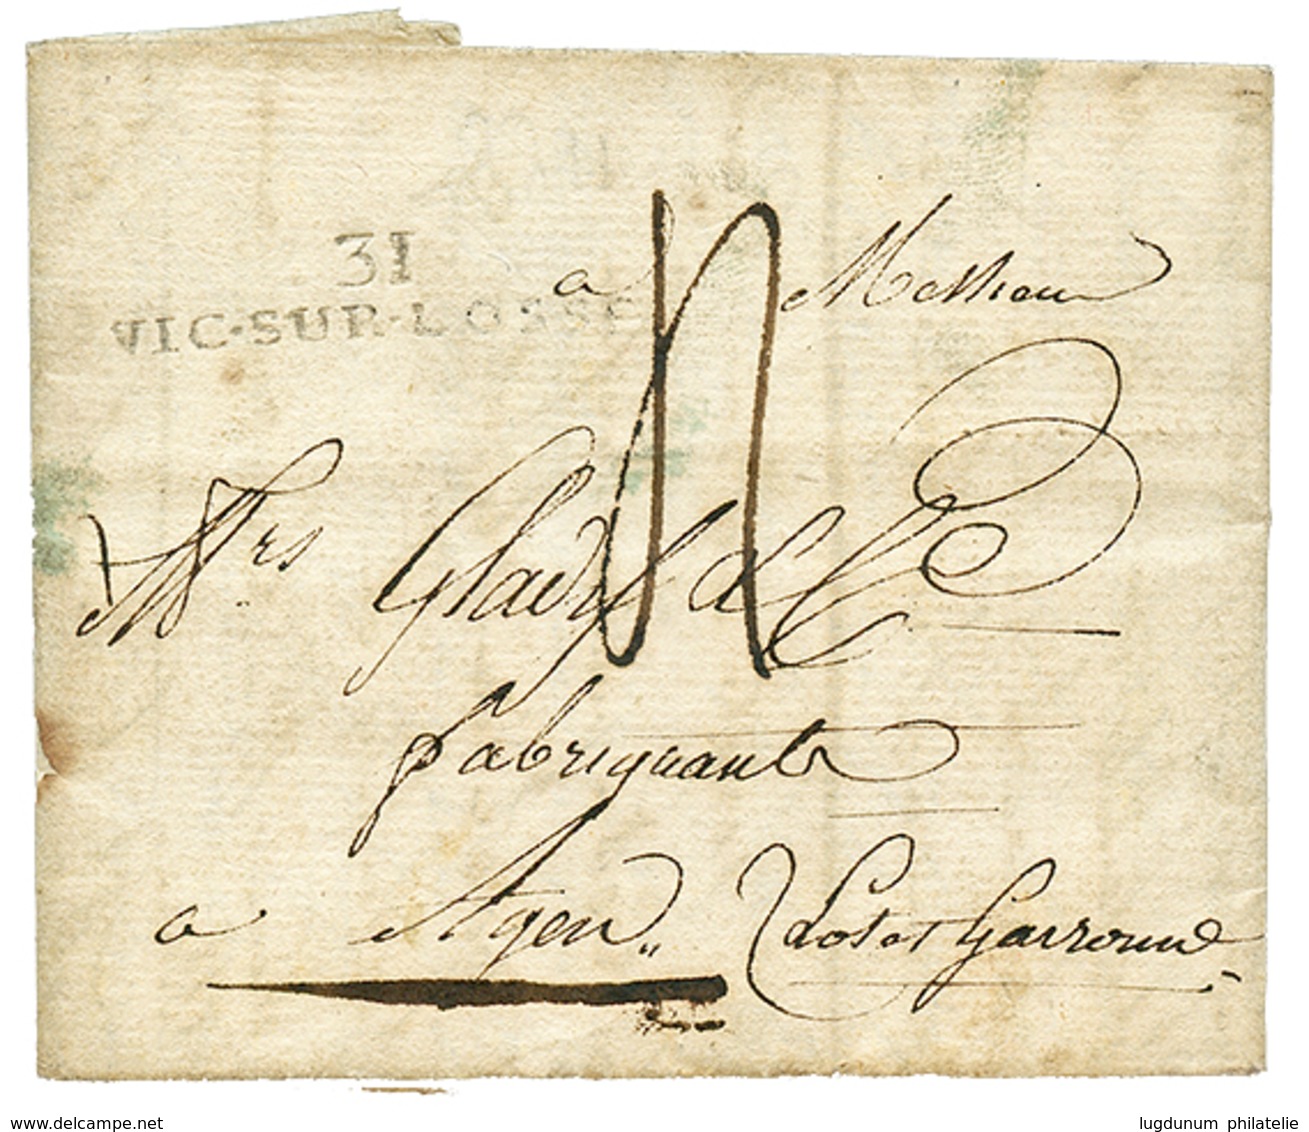 31
VIC·SUR·LOSSE
a Messieurs
Mrs Gladi & Ce
fabriquants
a Agen Lot et Garronne
www.delcampe.net
lugdunum philatelie